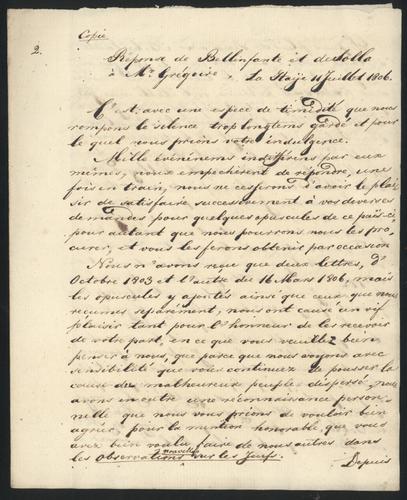 Copie
2.
Réponse de Bellinfante et de Solla
à Mr. Grégoire, La Haije 11 Juillet 1806.
C'est avec une espece de timidité que nous
rompons le silence trop longtems gardé et pour
le quel nous prions votre indulgence.
Mille événémens indifférens par eux
mêmes, nous empécherent de répondre, une
fois en train, nous ne cesserons d'avoir le plai-
sir de satisfaire successivement à vos diverses
demandes pour quelques opuscules de ce païs-ci,
pour autant que nous pourrons nous les pro-
curer, et vous les ferons obtenir par occasion
Nous n'avons reçu que deux lettres, d'
Octobre 1803 et l'autre du 16 Mars 1806, mais
les opuscules y ajoutés ainsi que ceux que nous
reçumes séparément, nous ont causé un vif
plaisir tant pour l'honneur de les recevoir
de votre part, en ce que vous veuillez bien
penser à nous, que parce que nous voyons avec
sensibilité que vous continuez de pousser la
cause du malheureux peuple dispersé, nous
avons en outre une réconnaissance person-
nelle que nous vous prions de vouloir bien
agréer, pour la mention honorable que vous
avez bien voulu faire de nous autres dans
les Observations nouvelles sur les Juifs.
Depuis